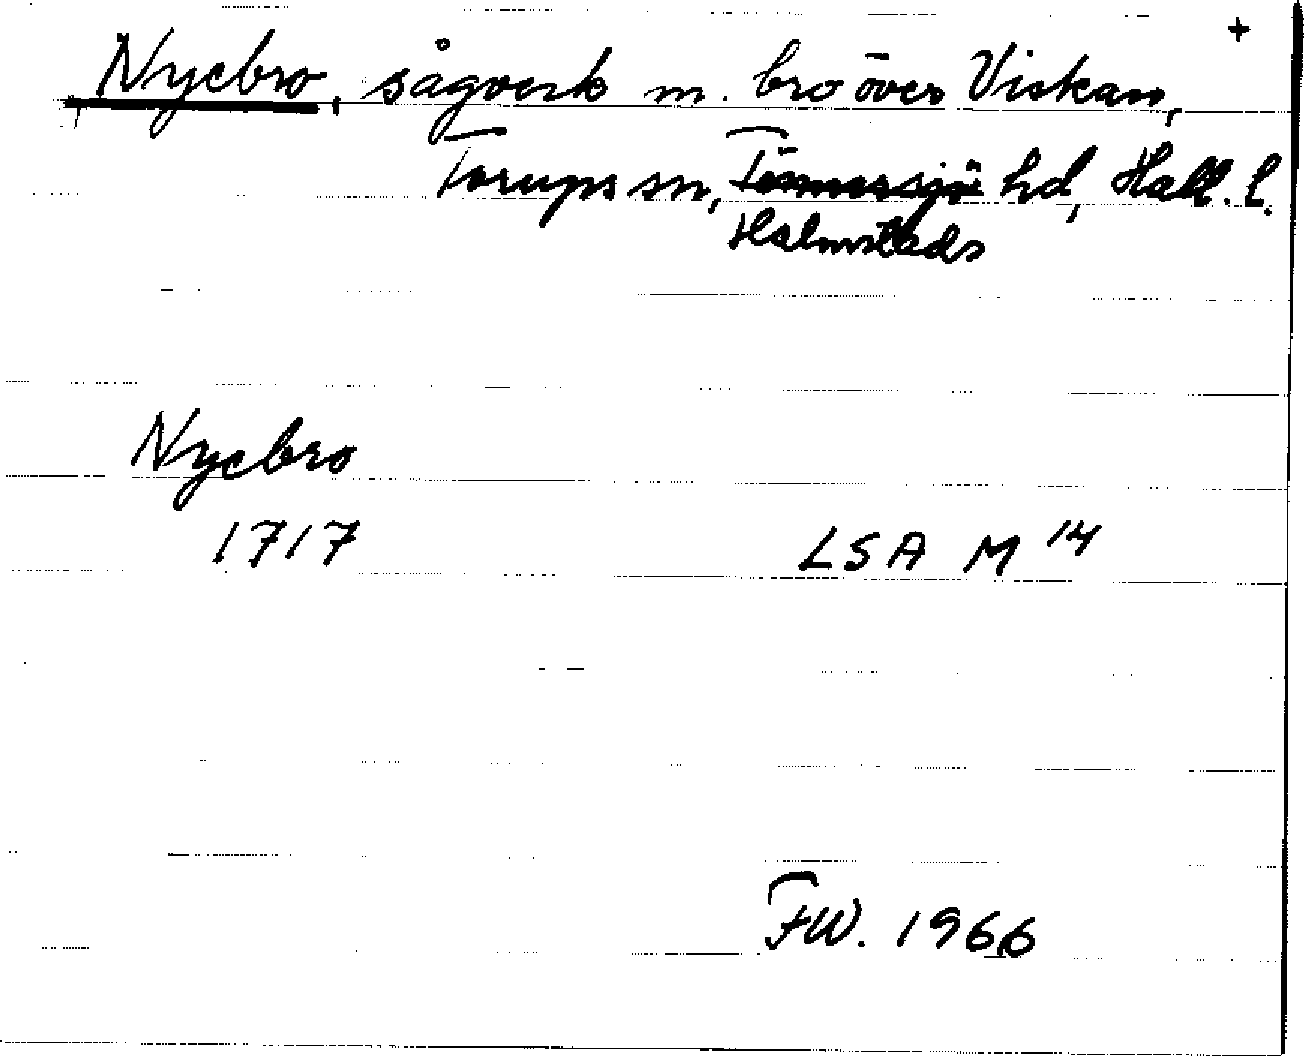 +
Nyebro, sågverk m. bro över Viskan,
Torups sn, Tönnersjö hd, Hall. l.
Halmstads
Nyebro
1717 LSA M 14
FW. 1966